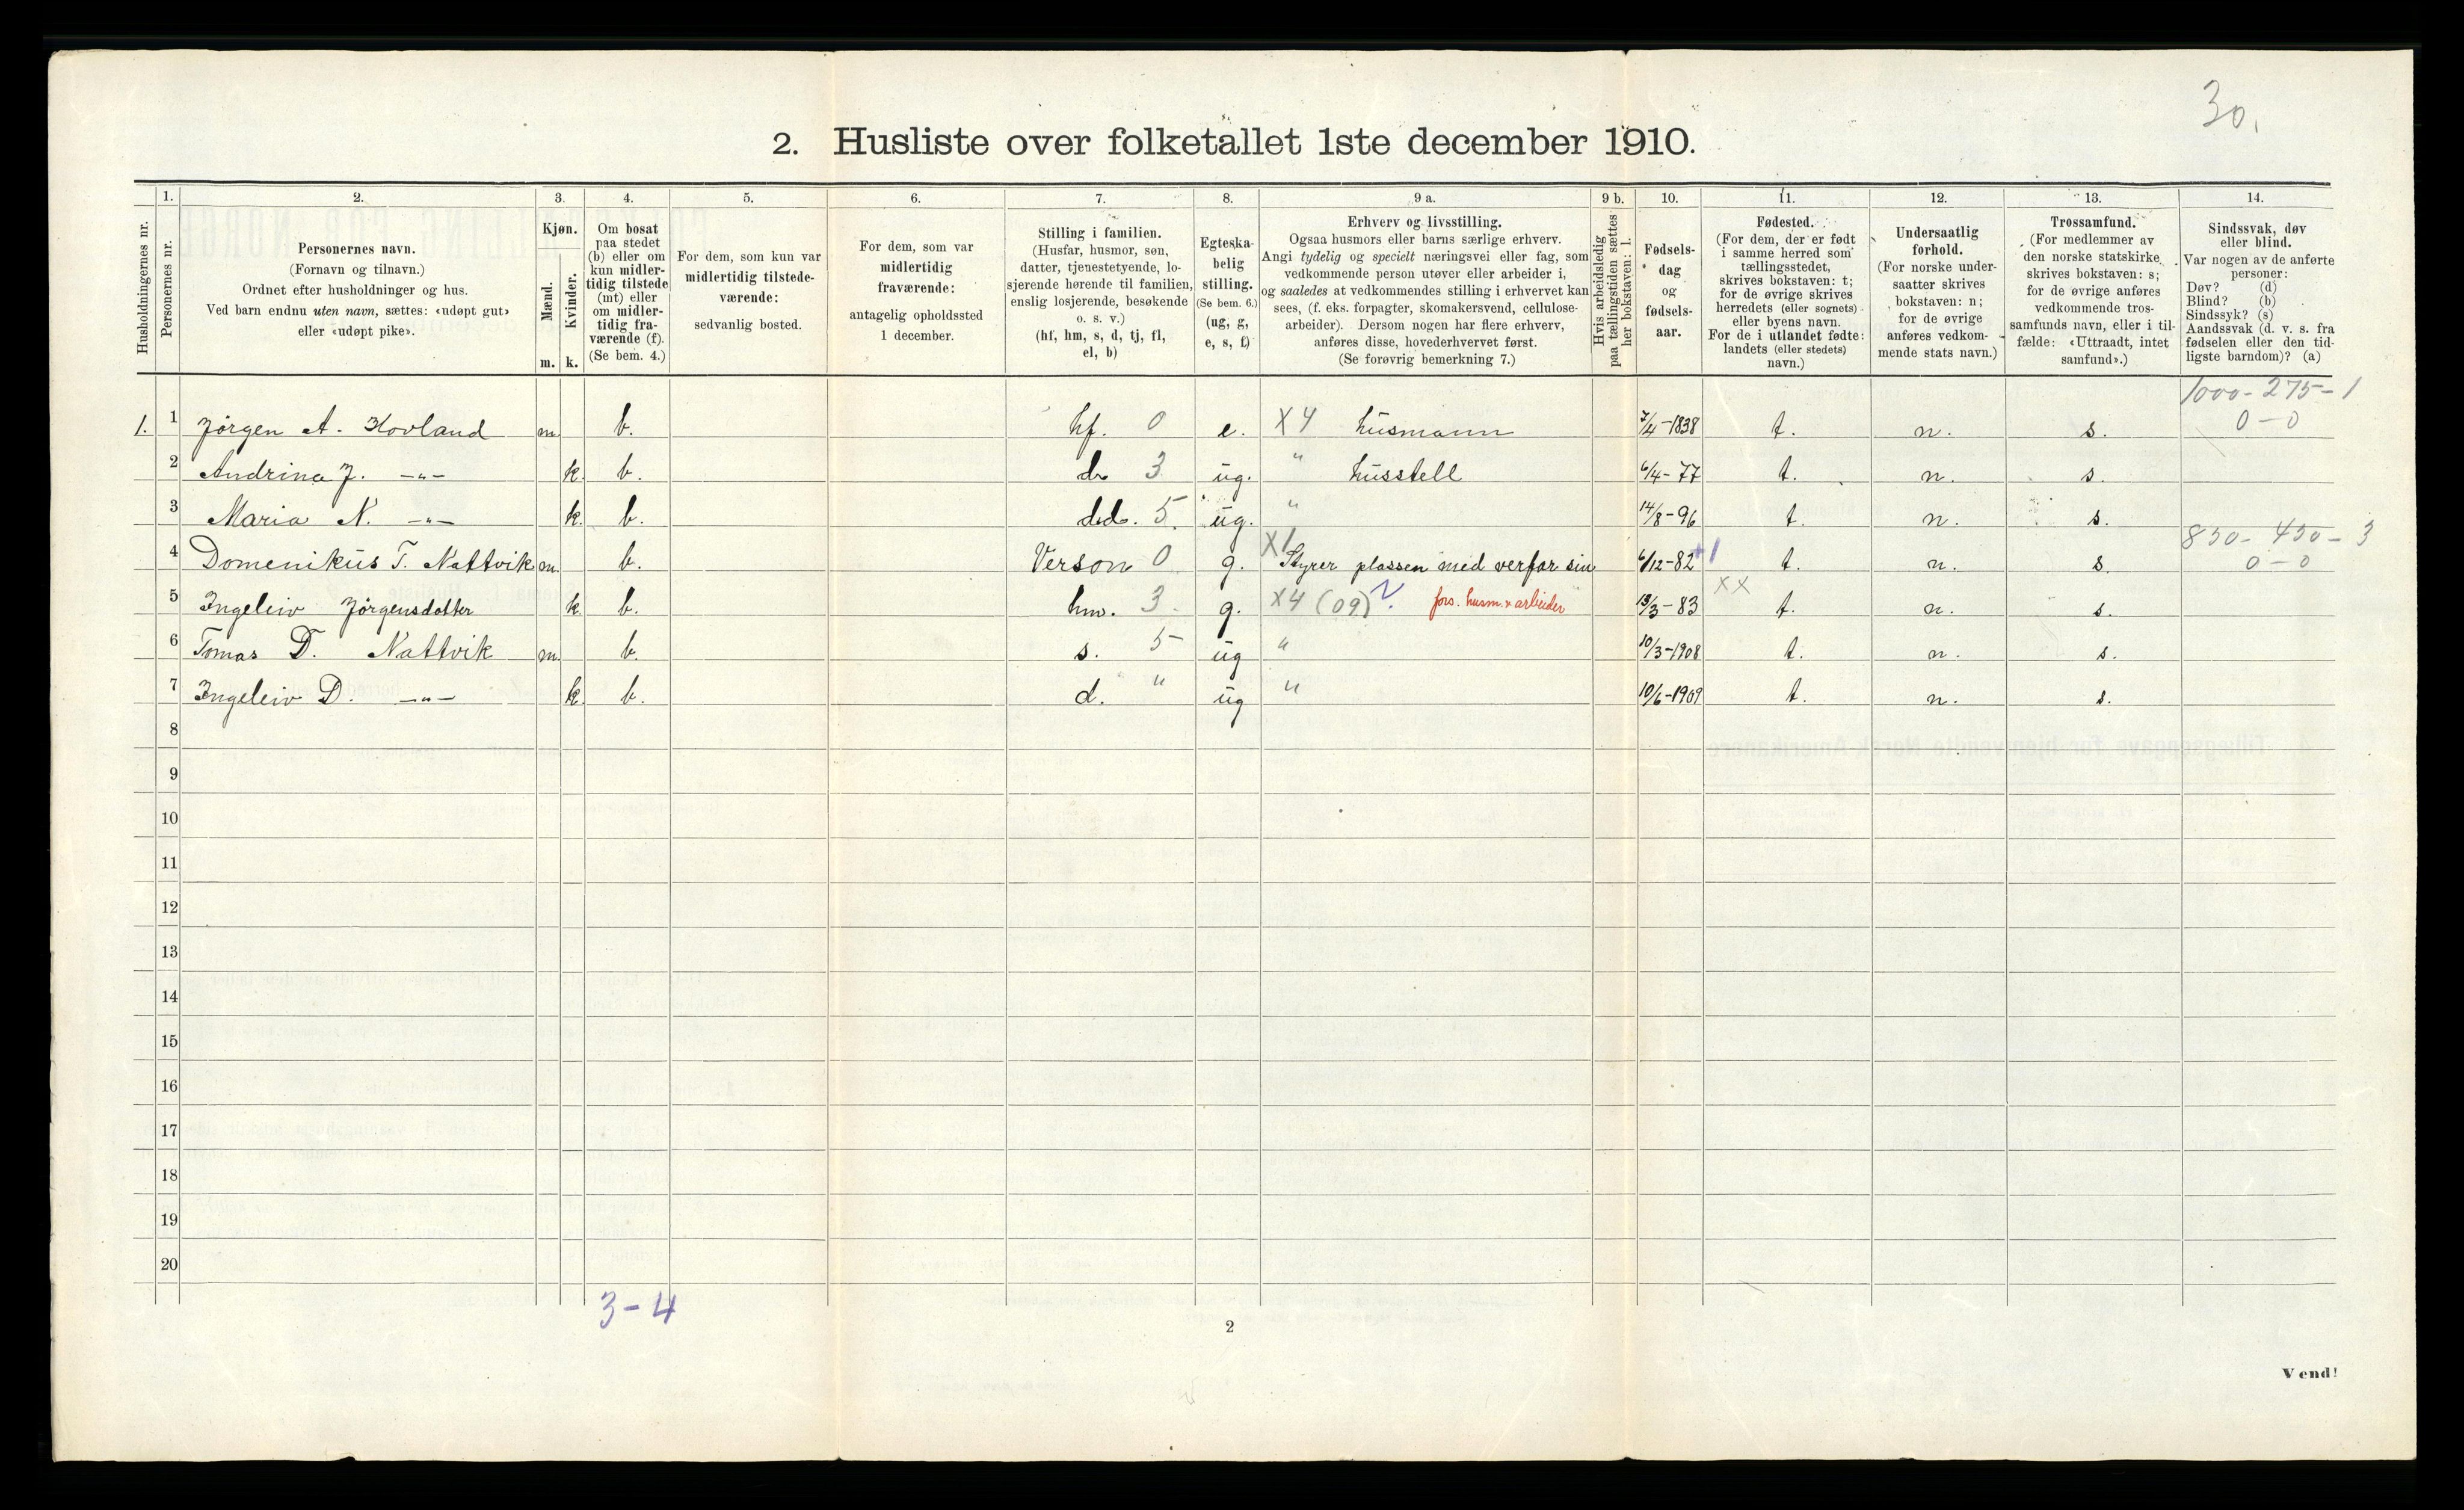 30.
2. Husliste over folketallet 1ste december 1910.
Husholdningernes nr.
1. Personernes nr.
2. Personernes navn. (Fornavn og tilnavn.) Ordnet efter husholdninger og hus. Ved barn endnu uten navn, sættes: «udøpt gut» eller «udøpt pike».
3. Kjøn. Mænd. m. Kvinder. k.
4. Om bosat paa stedet (b) eller om kun midlertidig tilstede (mt) eller om midlertidig fraværende (f). (Se bem. 4.)
5. For dem, som kun var midlertidig tilstedeværende: sedvanlig bosted.
6. For dem, som var midlertidig fraværende: antagelig opholdssted 1 december.
7. Stilling i familien. (Husfar, husmor, søn, datter, tjenestetyende, losjerende hørende til familien, enslig losjerende, besøkende o. s. v.) (hf, hm, s, d, tj, fl, el, b)
8. Egteskabelig stilling. (Se bem. 6.) (ug, g, e, s, f)
9 a. Erhverv og livsstilling. Ogsaa husmors eller barns særlige erhverv. Angi tydelig og specielt næringsvei eller fag, som vedkommende person utøver eller arbeider i, og saaledes at vedkommendes stilling i erhvervet kan sees, (f. eks. forpagter, skomakersvend, cellulosearbeider). Dersom nogen har flere erhverv, anføres disse, hovederhvervet først. (Se forøvrig bemerkning 7.)
9 b. Hvis arbeidsledig paa tællingstiden sættes her bokstaven: l.
10. Fødselsdag og fødselsaar.
11. Fødested. (For dem, der er født i samme herred som tællingsstedet, skrives bokstaven: t; for de øvrige skrives herredets (eller sognets) eller byens navn. For de i utlandet fødte: landets (eller stedets) navn.)
12. Undersaatlig forhold. (For norske undersaatter skrives bokstaven: n; for de øvrige anføres vedkommende stats navn.)
13. Trossamfund. (For medlemmer av den norske statskirke skrives bokstaven: s; for de øvrige anføres vedkommende trossamfunds navn, eller i tilfælde: «Uttraadt, intet samfund».)
14. Sindssvak, døv eller blind. Var nogen av de anførte personer: Døv? (d) Blind? (b) Sindssyk? (s) Aandssvak (d. v. s. fra fødselen eller den tidligste barndom)? (a)
1000-275-1
1. 1 Jørgen A. Hovland m. b. hf. 0 e. X4 husmann 7/4-1838 t. n. s. 0-0
2 Andrina J. -„- k. b. d. 3 ug. " husstell 6/4-77 t. n. s.
3 Maria N. -„- k. b. dd. 5. ug. " 14/8-96 t. n. s.
850-450-3
4 Domenikus T. Nattvik m. b. Verson 0 g. X1 Styrer plassen med verfar sin 6/12-82 +1 t. n. s. 0-0
5 Ingeleiv Jørgensdotter k. b. hm. 3. g. X4 (09) fors. husm. & arbeider 13/3-83 XX t. n. s.
6 Tomas D. Nattvik m. b. s. 5 ug " 10/3-1908 t. n. s.
7 Ingeleiv D. -„- k. b. d. " ug " 10/6-1909 t. n. s.
8
9
10
11
12
13
14
15
16
17
18
19
20
3-4
2
Vend!